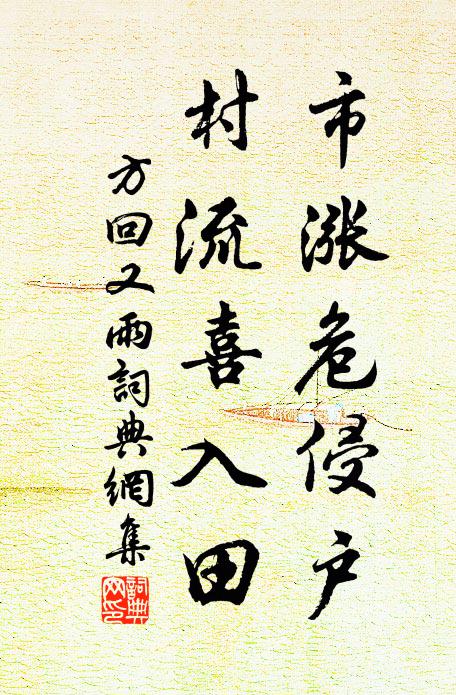 市涨危侵户
村流喜入田
方回又雨詞典網集
詞典
网印